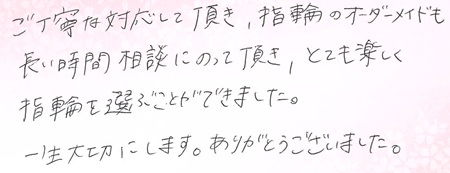 ご丁寧な対応して頂き，指輪のオーダーメイドも
長い時間相談にのって頂き，とても楽しく
指輪を選ぶことができました。
一生大切にします。ありがとうございました。